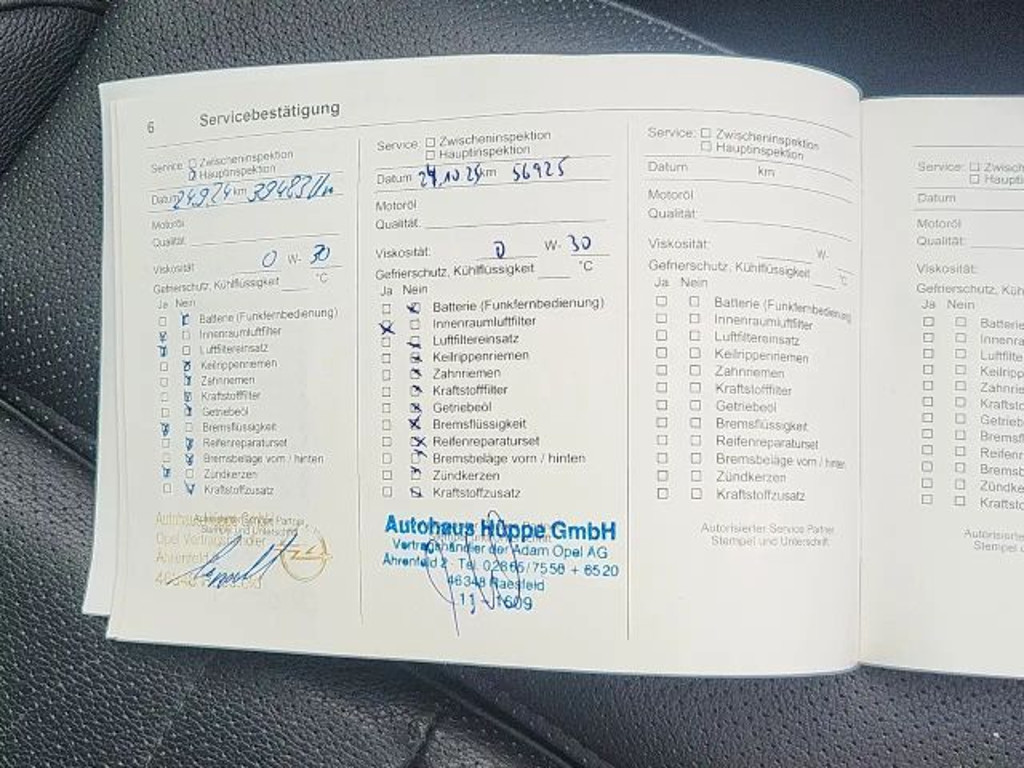 6 Servicebestätigung
Service: Zwischeninspektion
Hauptinspektion
Datum 24.9.24 km 39483
Motoröl
Qualität:
Viskosität 0 W- 30
Gefrierschutz, Kühlflüssigkeit °C
Ja Nein
Batterie (Funkfernbedienung)
Innenraumluftfilter
Luftfiltereinsatz
Keilrippenriemen
Zahnriemen
Kraftstofffilter
Getriebeöl
Bremsflüssigkeit
Reifenreparaturset
Bremsbeläge vorn / hinten
Zündkerzen
Kraftstoffzusatz
Autorisierter Service Partner
Stempel und Unterschrift
Service: Zwischeninspektion
Hauptinspektion
Datum km 56925
Motoröl
Qualität:
Viskosität: 0 W- 30
Gefrierschutz, Kühlflüssigkeit °C
Ja Nein
Batterie (Funkfernbedienung)
Innenraumluftfilter
Luftfiltereinsatz
Keilrippenriemen
Zahnriemen
Kraftstofffilter
Getriebeöl
Bremsflüssigkeit
Reifenreparaturset
Bremsbeläge vorn / hinten
Zündkerzen
Kraftstoffzusatz
Autohaus Hüppe GmbH
Vertragshändler der Adam Opel AG
Ährenfeld 2 · Tel. 02865/7550 + 6520
46348 Raesfeld
11 - 1609
Service: Zwischeninspektion
Hauptinspektion
Datum km
Motoröl
Qualität:
Viskosität: W-
Gefrierschutz, Kühlflüssigkeit °C
Ja Nein
Batterie (Funkfernbedienung)
Innenraumluftfilter
Luftfiltereinsatz
Keilrippenriemen
Zahnriemen
Kraftstofffilter
Getriebeöl
Bremsflüssigkeit
Reifenreparaturset
Bremsbeläge vorn / hinten
Zündkerzen
Kraftstoffzusatz
Autorisierter Service Partner
Stempel und Unterschrift
Service: Zwisch
Haupti
Datum
Motoröl
Qualität:
Viskosität:
Gefrierschutz, Küh
Ja Nein
Batterie
Innenra
Luftfilte
Keilripp
Zahnrie
Kraftsto
Getrieb
Bremsfl
Reifenr
Bremsb
Zündke
Kraftsto
Autorisierte
Stempel